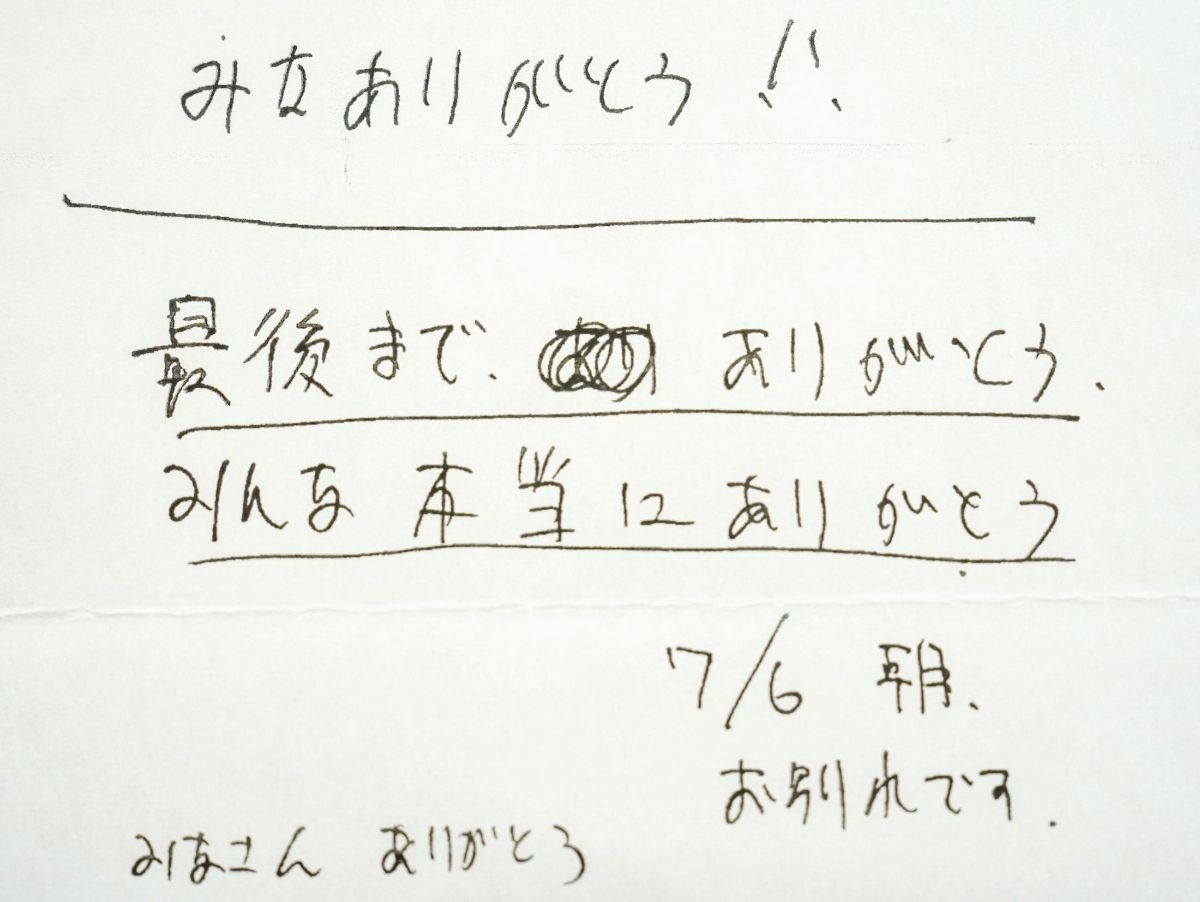 みなありがとう!!
最後まで、ありがとう.
みんな本当にありがとう
7/6 朝、
お別れです.
みなさん ありがとう